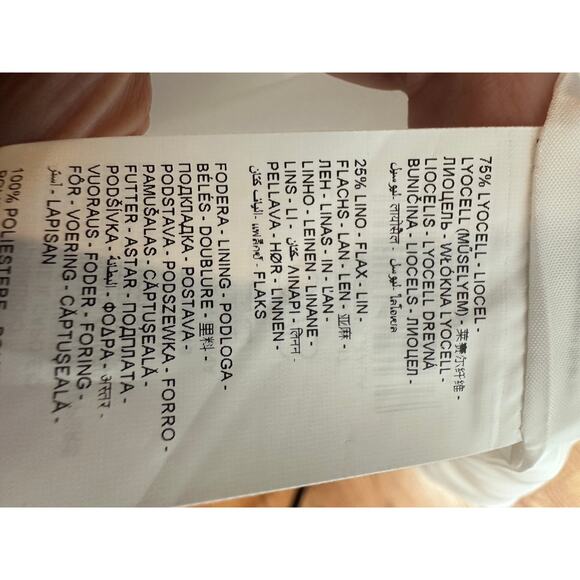 75% LYOCELL - LIOCEL -
LYOCELL (MŰSELYEM) - 莱赛尔纤维 -
ЛИОЦЕЛЬ - WŁÓKNA LYOCELL -
LIOCELIS - LYOCELL DREVNÁ
BUNIČINA - LIOCELS - ЛИОЦЕЛ -
ليوسيل - लायोसेल - ليوسل - ไลโอเซลล์
25% LINO - FLAX - LIN -
FLACHS - LAN - LEN - 亚麻 -
ЛЕН - LINAS - IN - ĽAN -
LINHO - LEINEN - LINANE -
LINS - LI - كتان - ΛΙΝΑΡΙ - लिनन -
PELLAVA - HØR - LINNEN -
FLAKS
FODERA - LINING - PODLOGA -
BÉLÉS - DOUBLURE - 里料 -
ПОДКЛАДКА - POSTAVA -
PODSTAVA - PODSZEWKA - FORRO -
PAMUŠALAS - CĂPTUŞEALĂ -
FUTTER - ASTAR - ПОДПЛАТА -
PODŠÍVKA - البطانة - ΦΟΔΡΑ - अस्तर -
VUORAUS - FODER - FORING -
FÔR - VOERING - CĂPTUŞEALĂ -
آستر - LAPISAN
100% POLIESTERE -